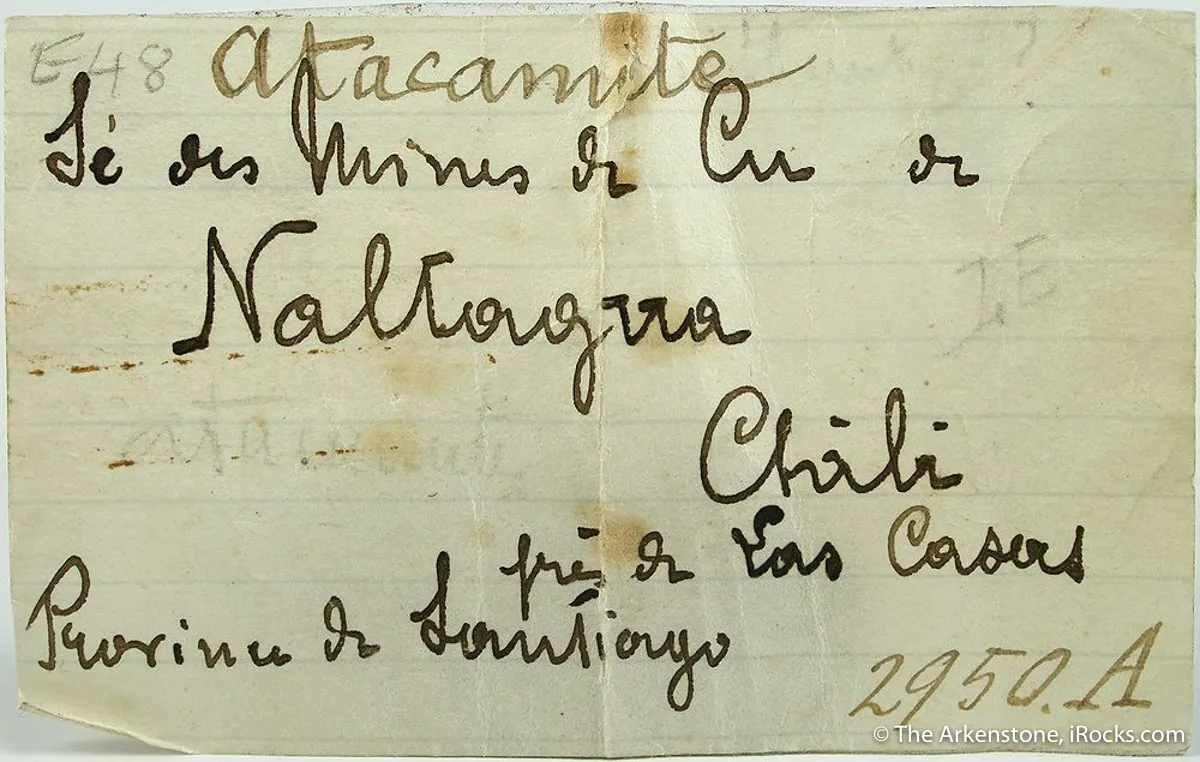 E 48 Atacamite
Sé des Mines de Cu de
Naltagua
I E
Chili
près de Las Casas
Province de Santiago
2950.A
© The Arkenstone, iRocks.com